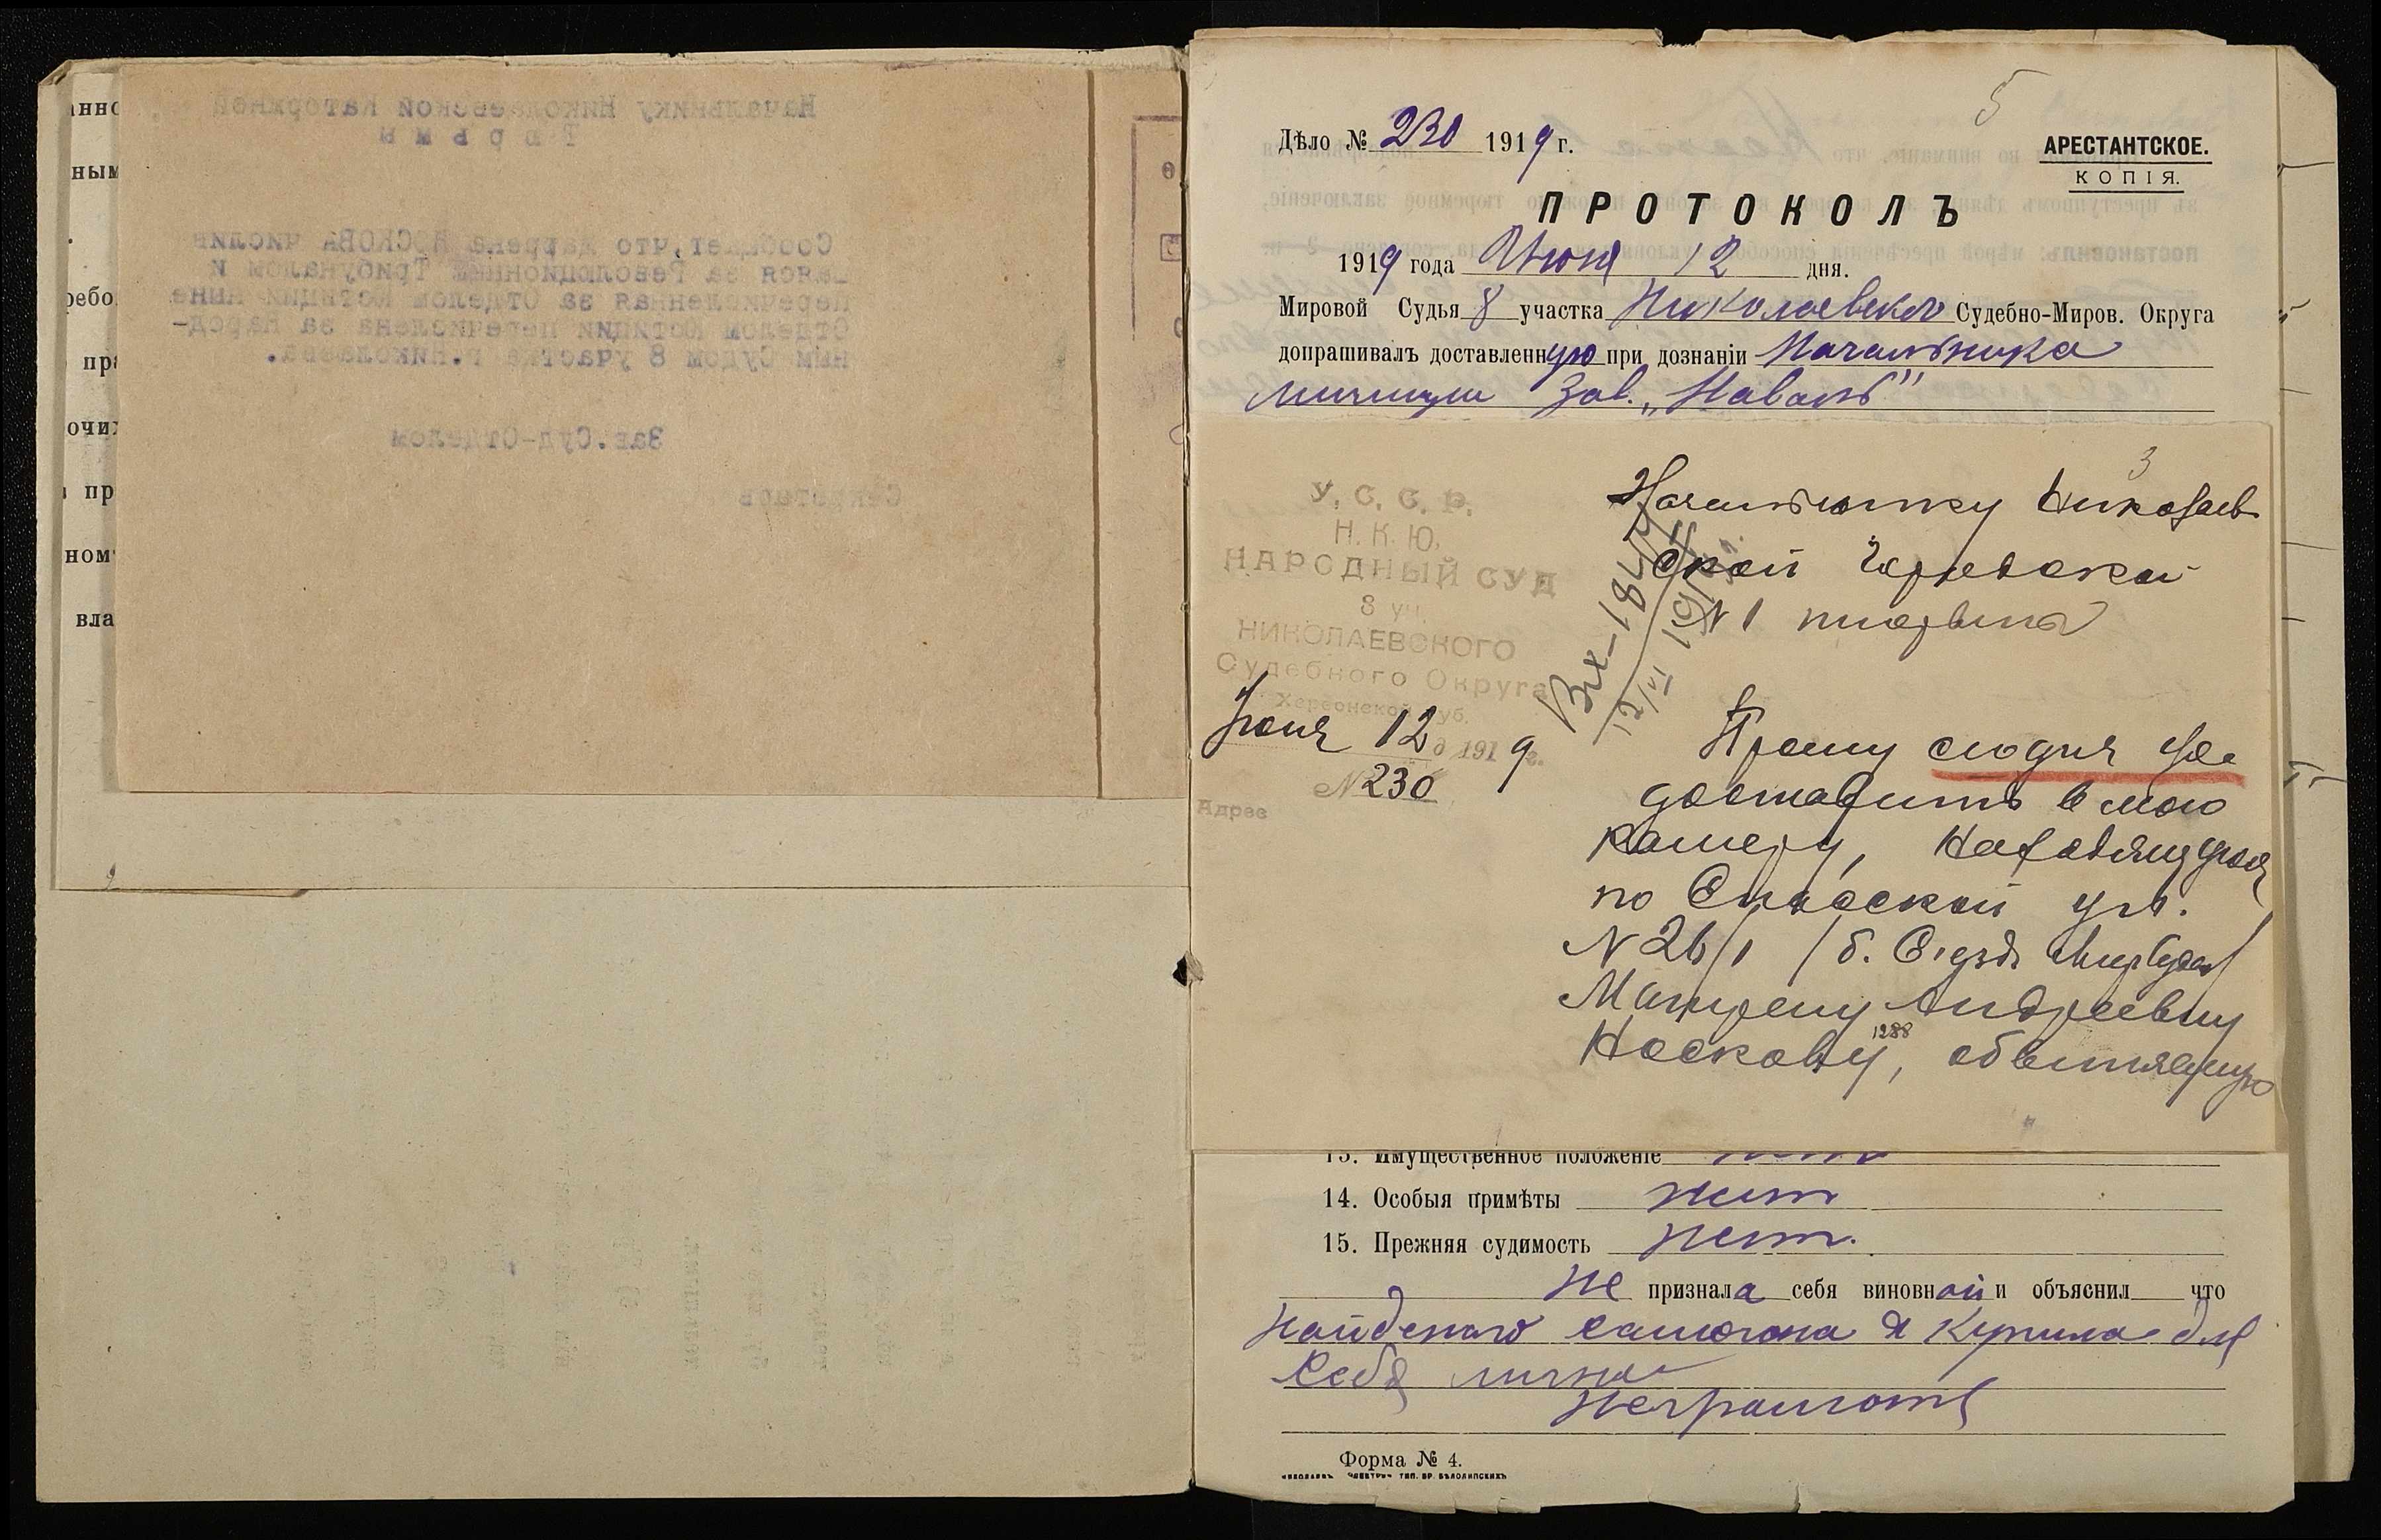 нно
ным
ребо
пра
очих
пр
ном
вла
Начальнику Николаевской Каторжной
Тюрьмы
Сообщает, что матрена НОСКОВА числив
шаяся за Революционным Трибуналом и
перечисленная за Отделом Юстиции ныне
Отделом Юстиции перечислена за народ-
ным Судом 8 участка г. Николаева.
Зав.Суд-Отделом
Секретарь
5
Дѣло № 230 1919 г.
АРЕСТАНТСКОЕ.
КОПІЯ.
ПРОТОКОЛЪ
1919 года Июня 12 дня.
Мировой Судья 8 участка Николаевского Судебно-Миров. Округа
допрашивалъ доставленную при дознаніи Начальника
милиции зав. „Наваль"
3
У. С. С. Р.
Н. К. Ю.
НАРОДНЫЙ СУД
8 уч.
НИКОЛАЕВСКОГО
Судебного Округа
Херсонской губ.
Июня 12 д 1919 г.
№ 230
Адрес
Вх-
12/VI 19
Начальнику Николаев
ской Городской
N 1 тюрьма
Прошу сюдня же
доставить в мою
камеру, находящуюся
по Спасской ул.
N 26/1 /б. Съезд Мир Судей/
Матрену Андреевну
Носкову, 1288 обвиняемую
13. Имущественное положеніе нет
14. Особыя примѣты нет
15. Прежняя судимость Нет.
Не признала себя виновной и объяснил что
найденого самогона я купила для
себя лично
Неграмотная
Форма № 4.